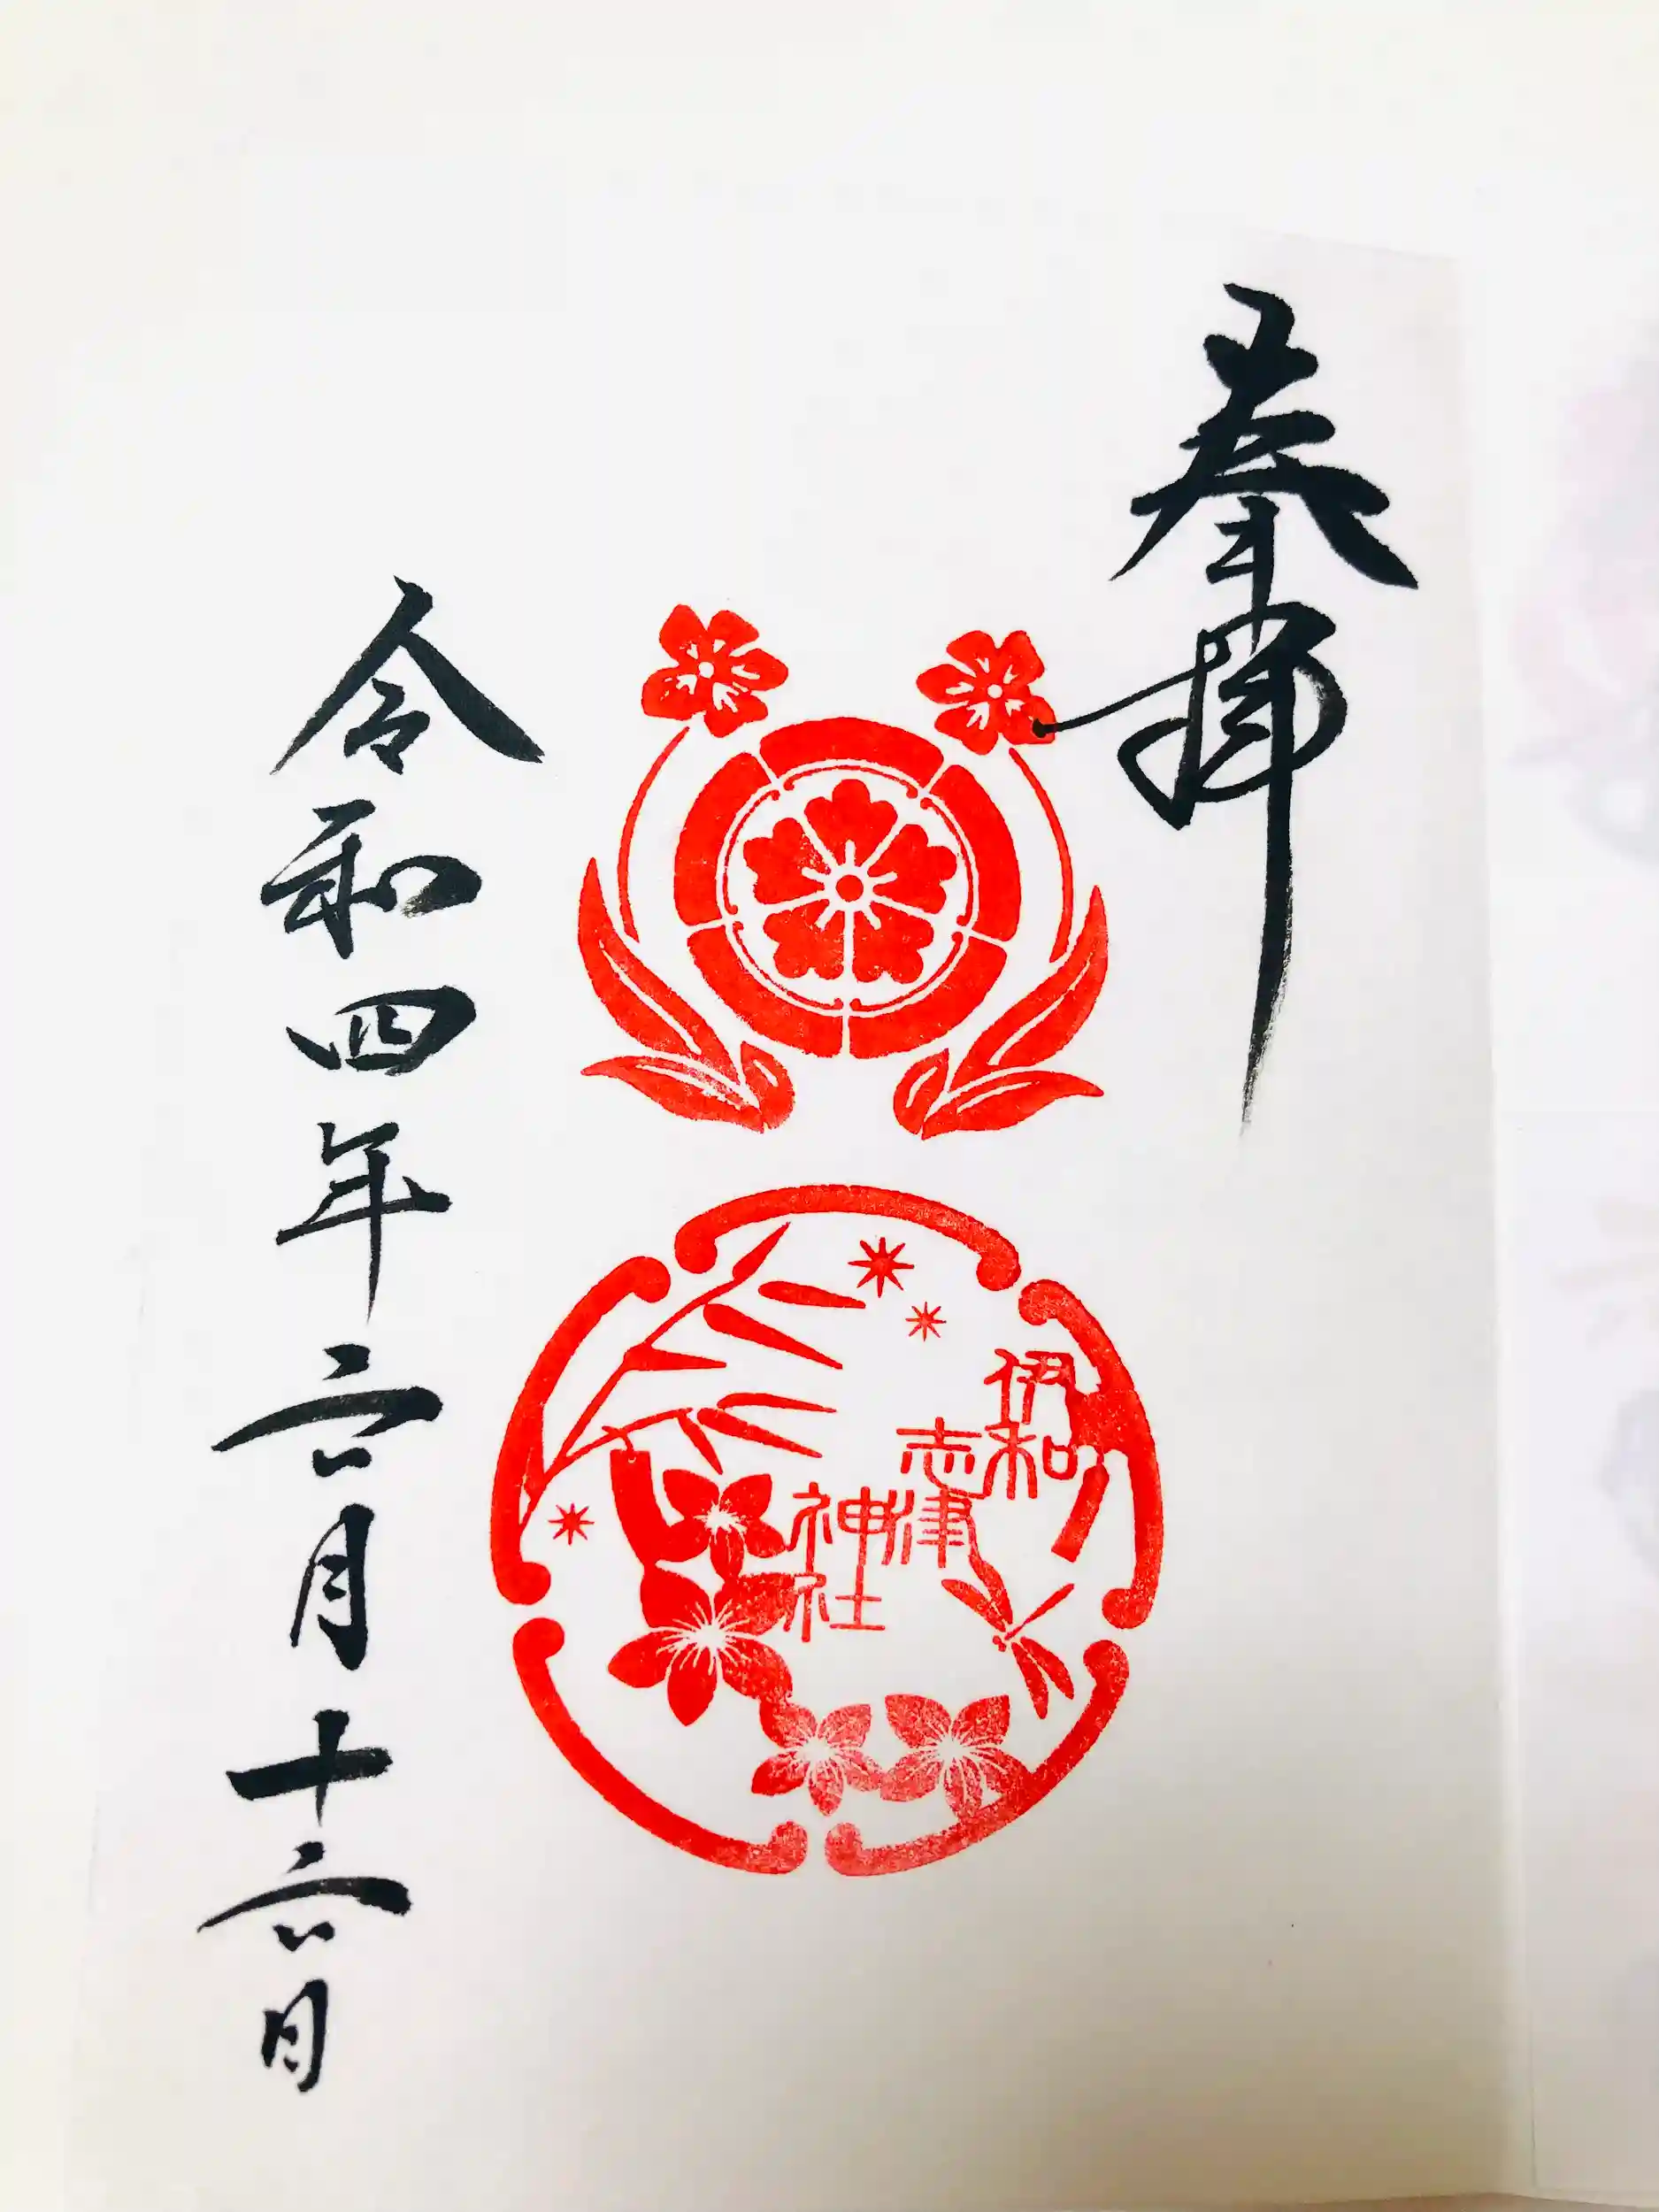 奉拝
伊和
志津
神社
令和四年六月十六日